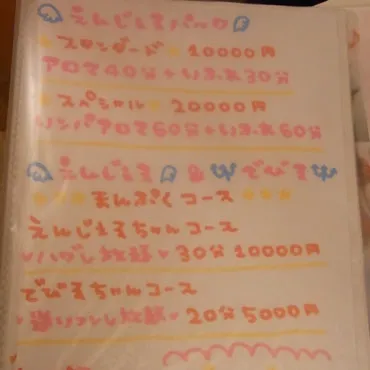 えんじぇるパック
スタンダード 10000円
アロマ40分+いふれ30分
スペシャル 20000円
リンパアロマ60分+いふれ60分
えんじぇる & でびる
まんぷくコース
えんじぇるちゃんコース
ハグし放題 30分 10000円
でびるちゃんコース
し放題 20分 5000円